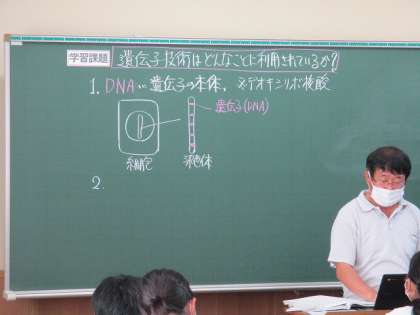 学習課題 遺伝子技術はどんなことに利用されているか?
1. DNA… 遺伝子の本体、デオキシリボ核酸
遺伝子(DNA)
細胞 染色体
2.